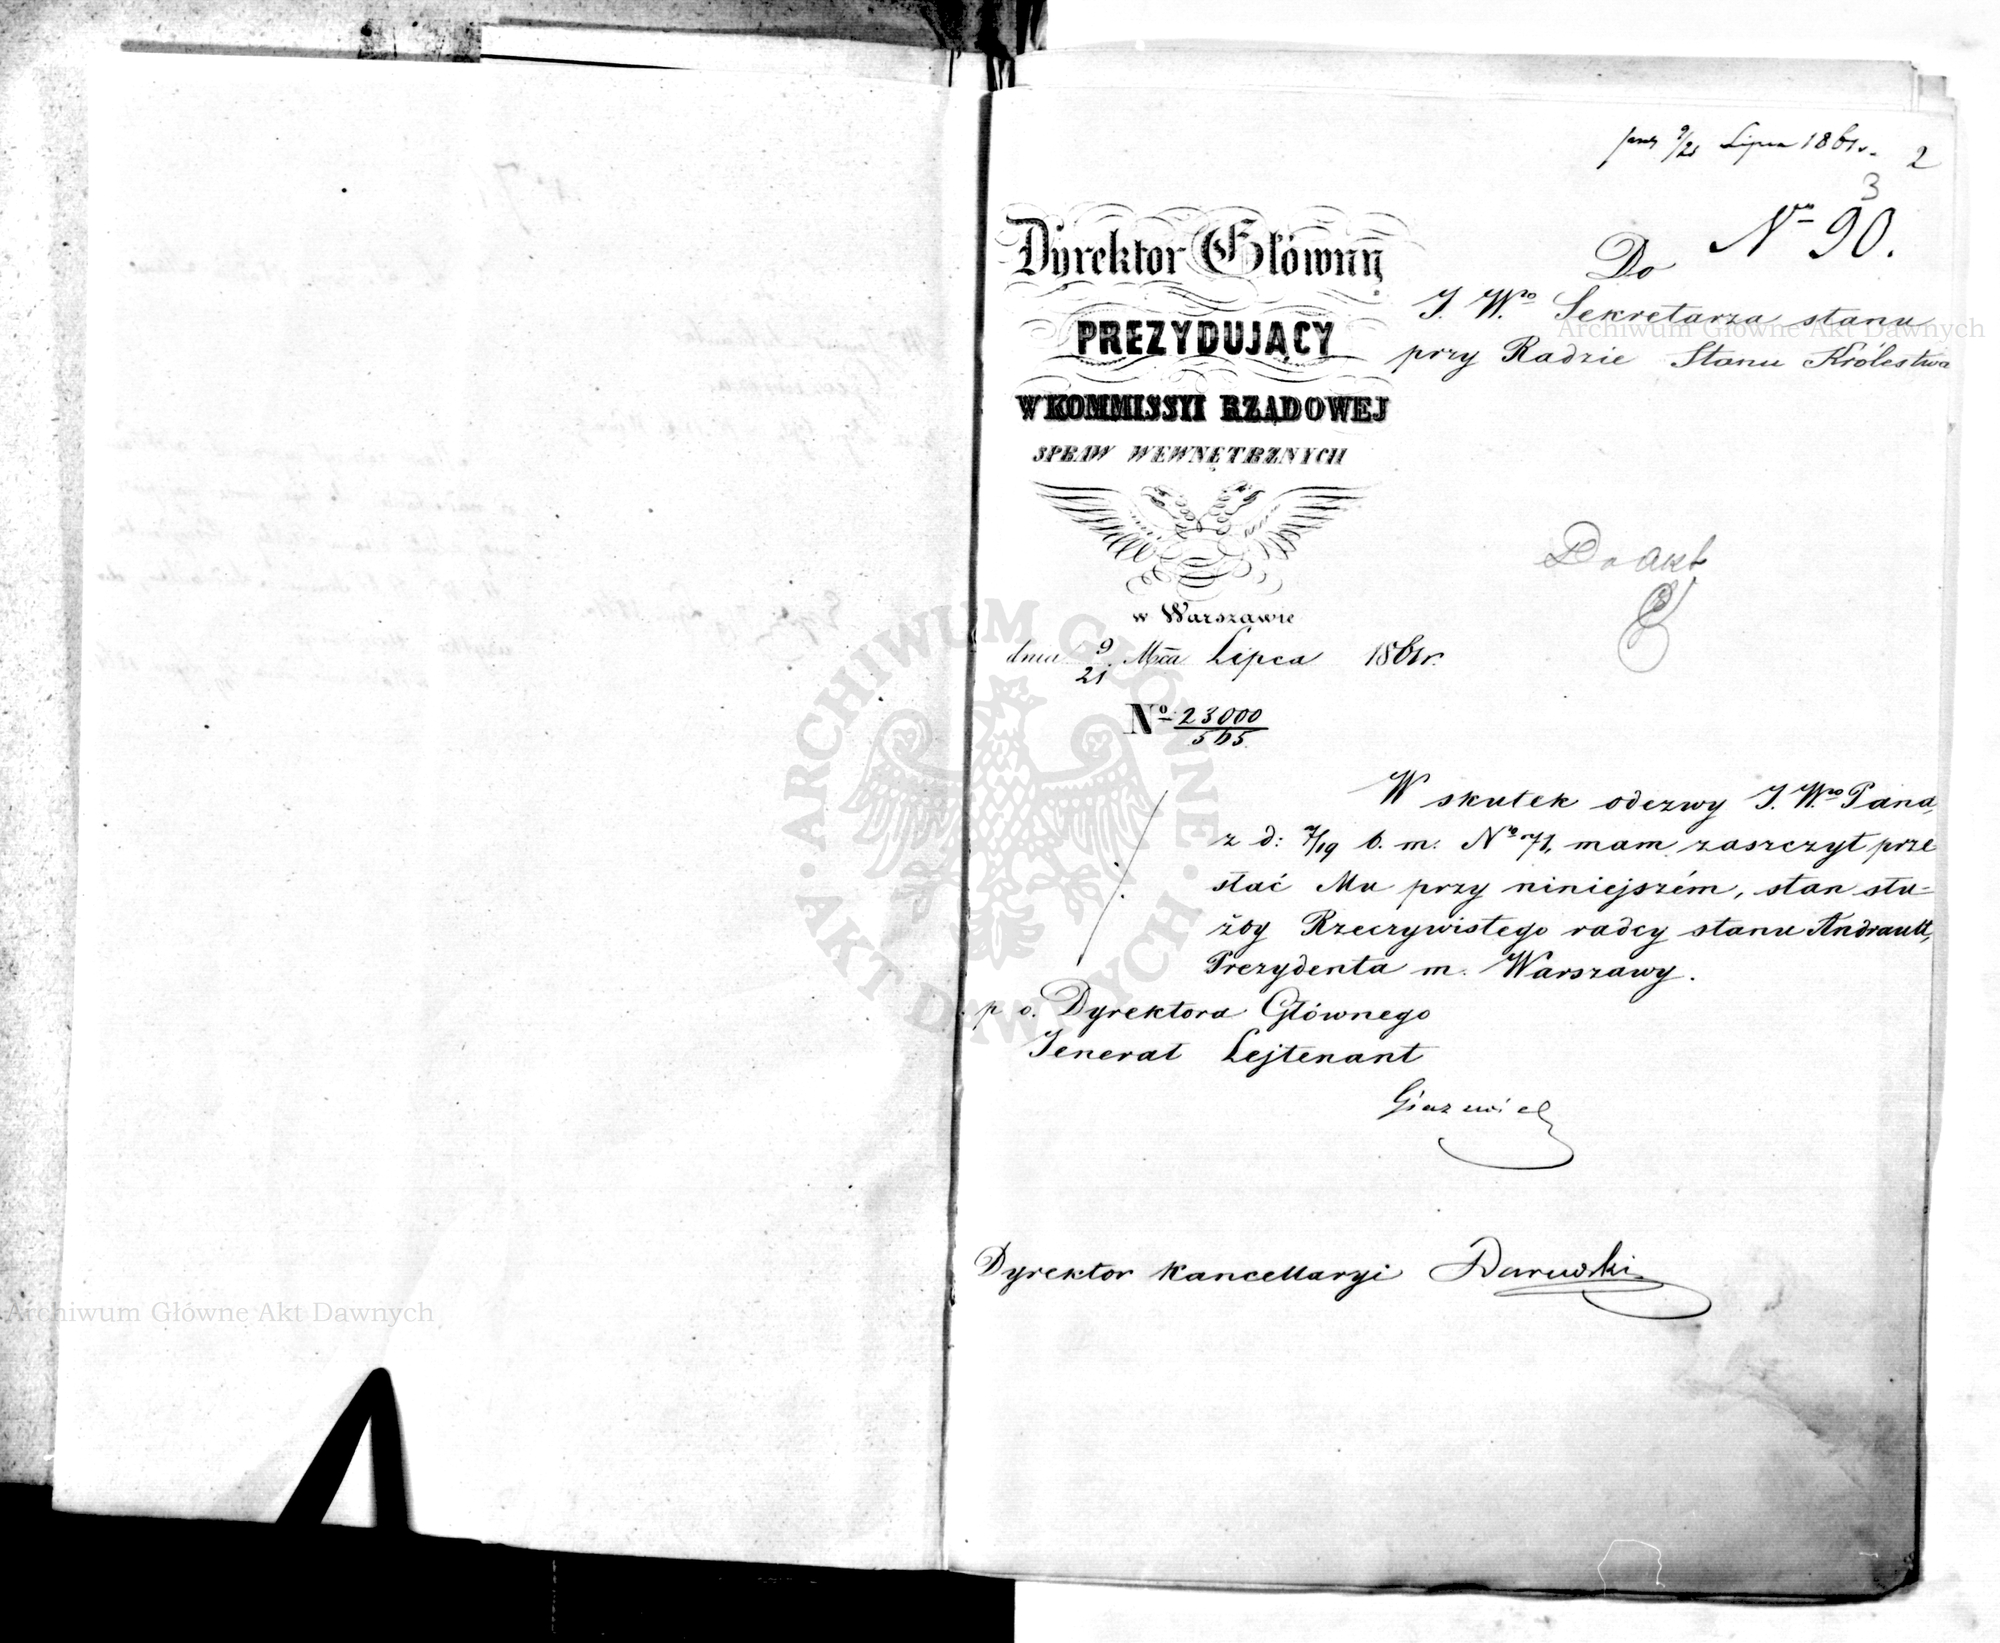 prez 9/21 Lipca 1861 r. 2
3
Nro 90.
Dyrektor Główny
PREZYDUJĄCY
W KOMMISSYI RZĄDOWEJ
SPRAW WEWNĘTRZNYCH
w Warszawie
dnia 9/21 Mca Lipca 1861 r.
No 23000/565
Do
J. Wo Sekretarza stanu
przy Radzie Stanu Królestwa
Do akt
W skutek odezwy J. Wgo Pana,
z d: 7/19 b. m. Nro 71, mam zaszczyt prze
słać Mu przy niniejszém, stan słu=
żby Rzeczywistego radcy stanu Andrault,
Prezydenta m. Warszawy.
p. o. Dyrektora Głównego
Jenerał Lejtenant
Dyrektor Kancellaryi
Archiwum Główne Akt Dawnych
Archiwum Główne Akt Dawnych
ARCHIWUM GŁÓWNE AKT DAWNYCH